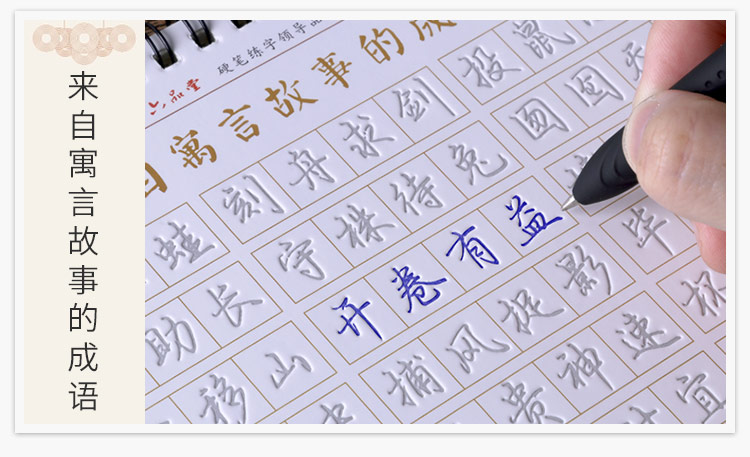 来自寓言故事的成语
六品堂 硬笔练字领导品
寓言故事的成
蛙 刻舟求剑 投鼠
助长 守株待兔 囫囵
移山 开卷有益
捕风捉影 毕
贵神速 杯
宜